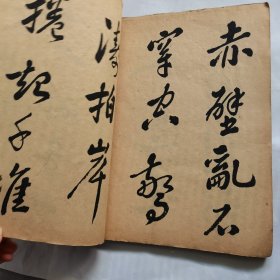 赤壁亂石
穿空驚
濤拍岸
捲起千堆